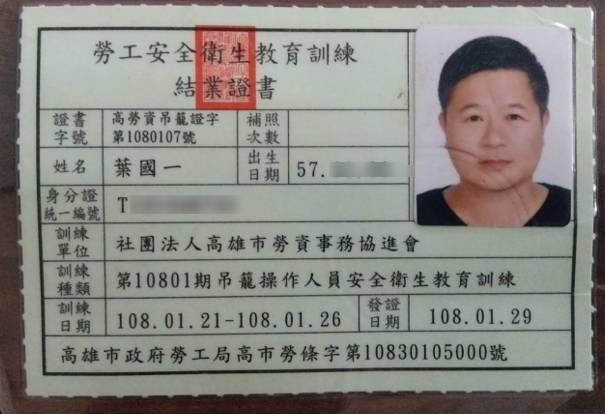 勞工安全衛生教育訓練
結業證書
證書字號 高勞資吊籠證字第1080107號 補照次數
姓名 葉國一 出生日期 57.
身分證統一編號 T
訓練單位 社團法人高雄市勞資事務協進會
訓練種類 第10801期吊籠操作人員安全衛生教育訓練
訓練日期 108.01.21-108.01.26 發證日期 108.01.29
高雄市政府勞工局高市勞條字第10830105000號